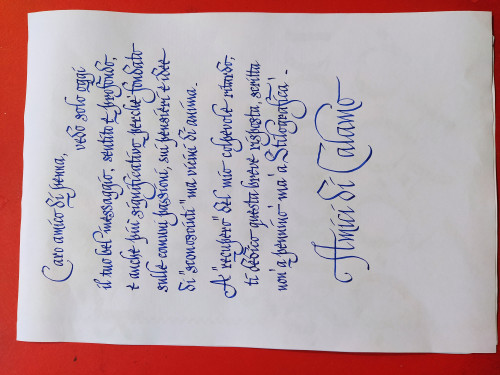 Caro amico di penna,
vedo solo oggi
il tuo bel messaggio, sentito e profondo,
e anche più significativo perché fondato
sulle comuni passioni, sui pensieri e idee
di "sconosciuti" ma vicini di anima.
A "recupero" del mio colpevole ritardo,
ti dedico questa breve risposta, scritta
non a pennino ma a Stilografica!
Amici di Calamo